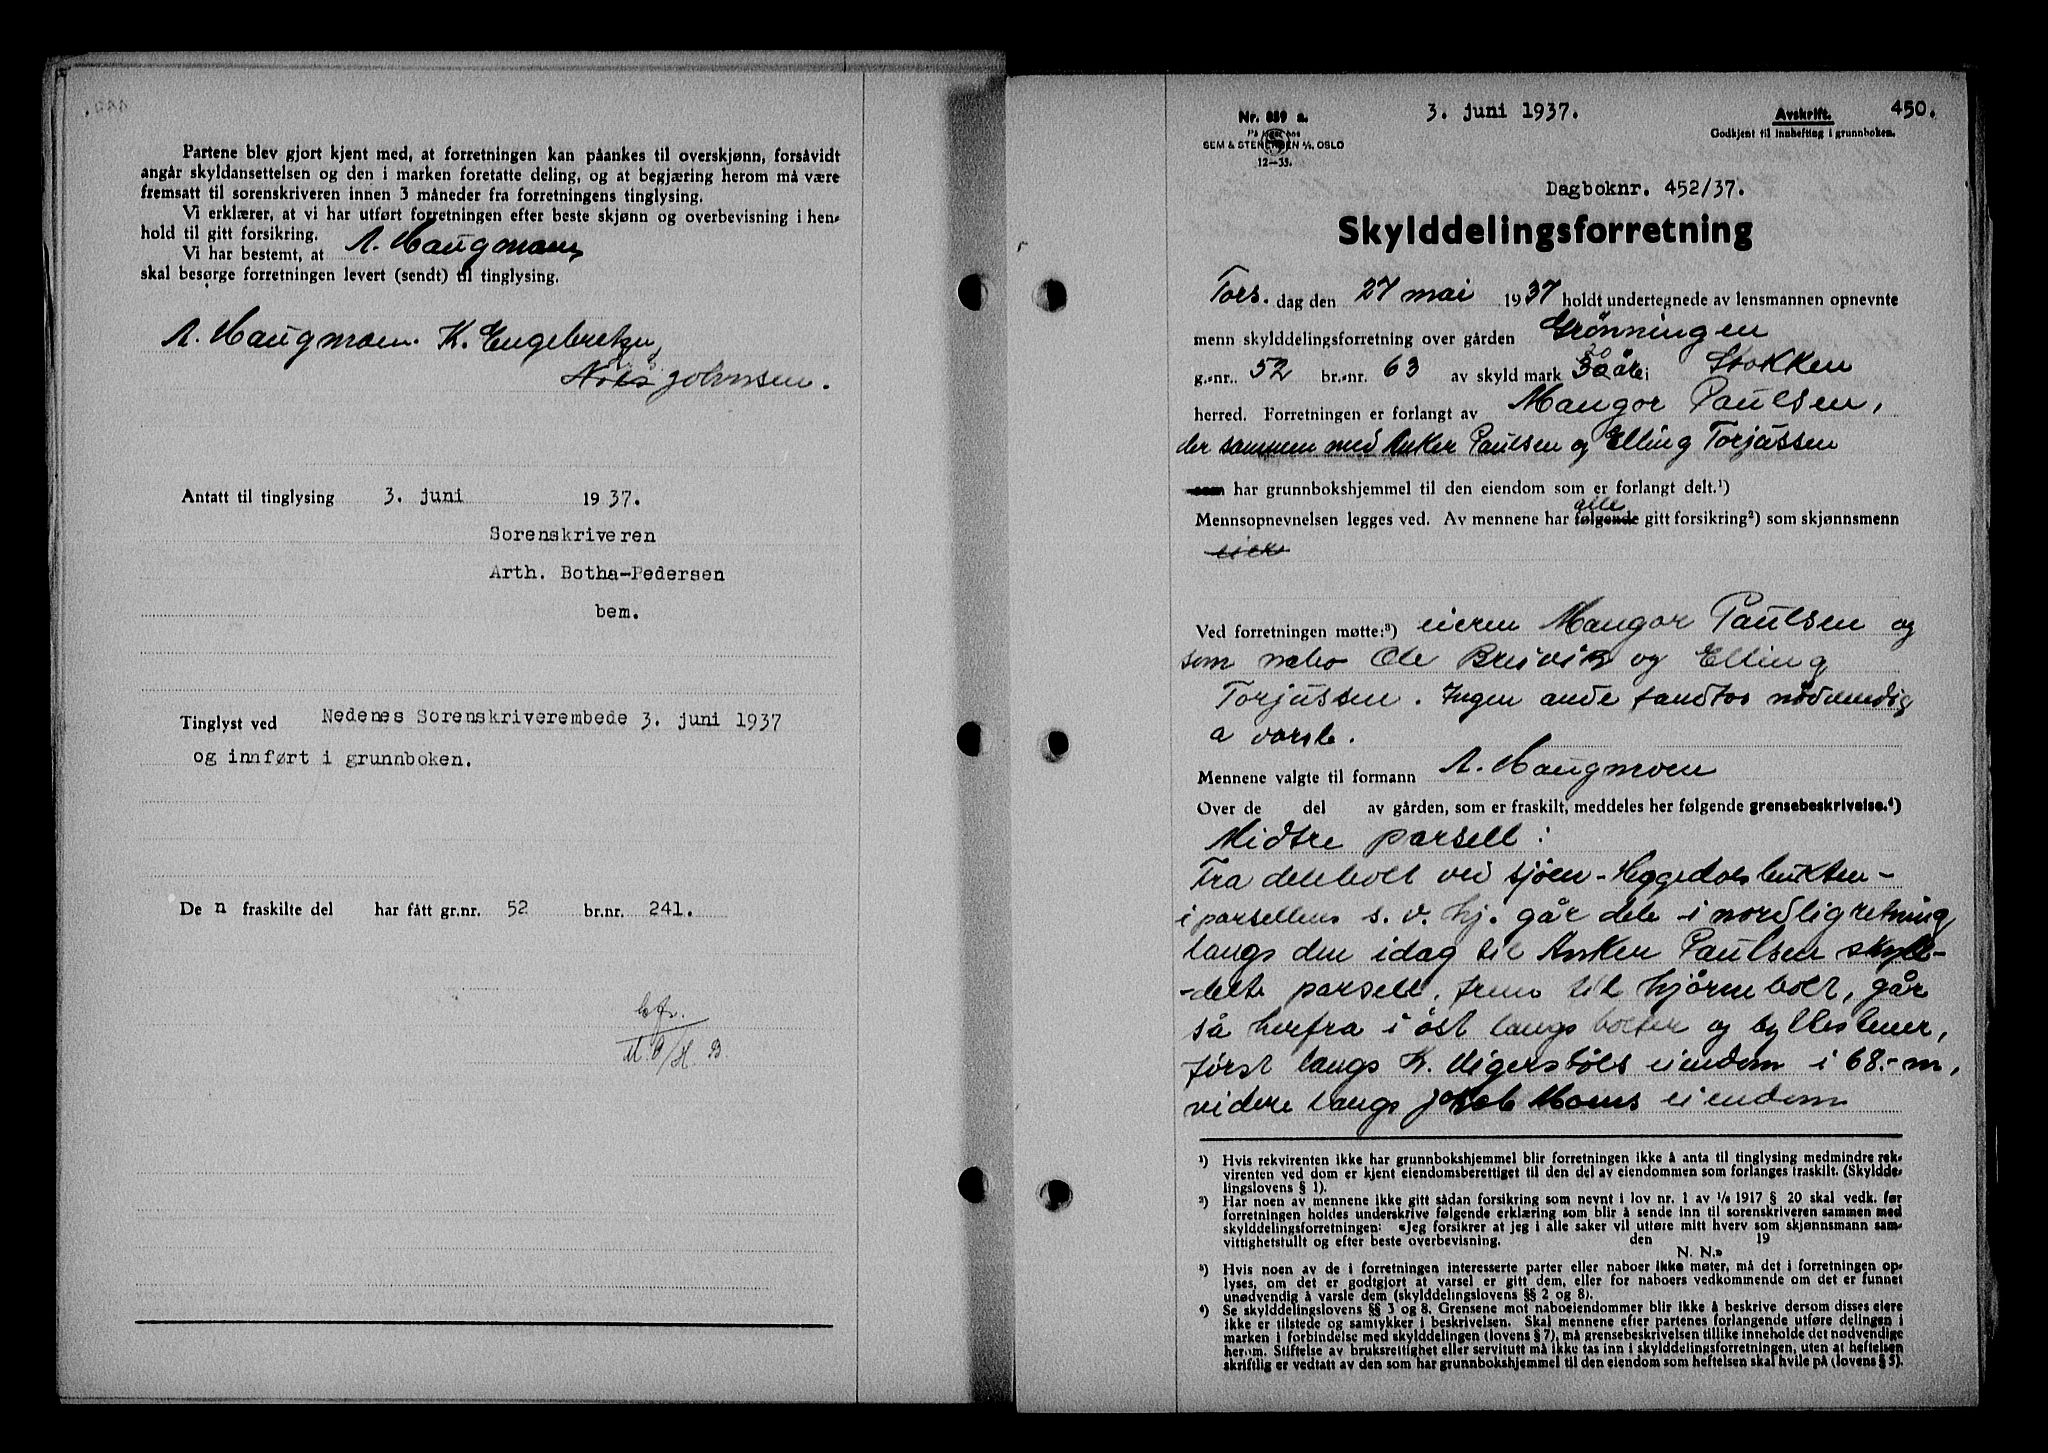 Partene blev gjort kjent med, at forretningen kan påankes til overskjønn, forsåvidt
angår skyldansettelsen og den i marken foretatte deling, og at begjæring herom må være
fremsatt til sorenskriveren innen 3 måneder fra forretningens tinglysing.
Vi erklærer, at vi har utført forretningen efter beste skjønn og overbevisning i hen-
hold til gitt forsikring.
Vi har bestemt, at A. Haugmoen
skal besørge forretningen levert (sendt) til tinglysing.
A. Haugmoen. K. Engebretsen
Nils Johnsen.
Antatt til tinglysing 3. juni 1937.
Sorenskriveren
Arth. Botha-Pedersen
bem.
Tinglyst ved Nedenes Sorenskriverembede 3. juni 1937
og innført i grunnboken.
De n fraskilte del har fått gr.nr. 52 br.nr. 241.
M.O/H.B.
Nr. 889 a. 3. juni 1937. Avskrift. 450.
På lager hos Godkjent til innhefting i grunnboken.
SEM & STENERSEN A/S. OSLO
12-35.
Dagboknr. 452/37.
Skylddelingsforretning
Tors. dag den 27 mai 1937 holdt undertegnede av lensmannen opnevnte
menn skylddelingsforretning over gården Grønningen
g.-nr. 52 br.-nr. 63 av skyld mark 30 øre i Stokken
herred. Forretningen er forlangt av Mangor Paulsen,
der sammen med Anker Paulsen og Elling Torjussen
som har grunnbokshjemmel til den eiendom som er forlangt delt.¹)
Mennsopnevnelsen legges ved. Av mennene har følgende alle gitt forsikring²) som skjønnsmenn
Ved forretningen møtte:³) eieren Mangor Paulsen og
som nabo Ole Breivik og Elling
Torjussen. Ingen andre fandtes nødvendig
a varsle.
Mennene valgte til formann A. Haugmoen
Over de del av gården, som er fraskilt, meddeles her følgende grensebeskrivelse.⁴)
Midtre parsell:
Fra delebolt ved sjøen - Heggedalsbukten -
i parsellens s. v. hj. går dele i nordlig retning
langs den idag til Anker Paulsen skyld-
-delte parsell, frem til hjørnebolt, går
så herfra i øst langs bolter og byttestener,
først langs K. Vigersbøls eiendom i 68.- m,
videre langs Jakob Moens eiendom
¹) Hvis rekvirenten ikke har grunnbokshjemmel blir forretningen ikke å anta til tinglysing medmindre rek-
virenten ved dom er kjent eiendomsberettiget til den del av eiendommen som forlanges fraskilt. (Skyldde-
lingslovens § 1).
²) Har noen av mennene ikke gitt sådan forsikring som nevnt i lov nr. 1 av 1/6 1917 § 20 skal vedk. før
forretningen holdes underskrive følgende erklæring som blir å sende inn til sorenskriveren sammen med
skylddelingsforretningen: «Jeg forsikrer at jeg i alle saker vil utføre mitt hverv som skjønnsmann sam-
vittighetsfullt og efter beste overbevisning. den 19
N. N.»
³) Hvis noen av de i forretningen interesserte parter eller naboer ikke møter, må det i forretningen op-
lyses, om det er godtgjort at varsel er gitt dem, eller for naboers vedkommende om det er funnet
unødvendig å varsle dem (skylddelingslovens §§ 2 og 8).
⁴) Se skylddelingslovens §§ 3 og 8. Grensene mot naboeiendommer blir ikke å beskrive dersom disses eiere
ikke er tilstede og samtykker i beskrivelsen. Skal mennene efter partenes forlangende utføre delingen i
marken i forbindelse med skylddelingen (lovens § 7), må grensebeskrivelsen tillike inneholde det nødvendige
herom. Stiftelse av bruksrettighet eller servitutt må ikke tas inn i skylddelingsforretningen, uten at heftelsen
skriftlig er vedtatt av den som har grunnbokshjemmel til den eiendom som heftelsen skal hvile på (lovens § 5).